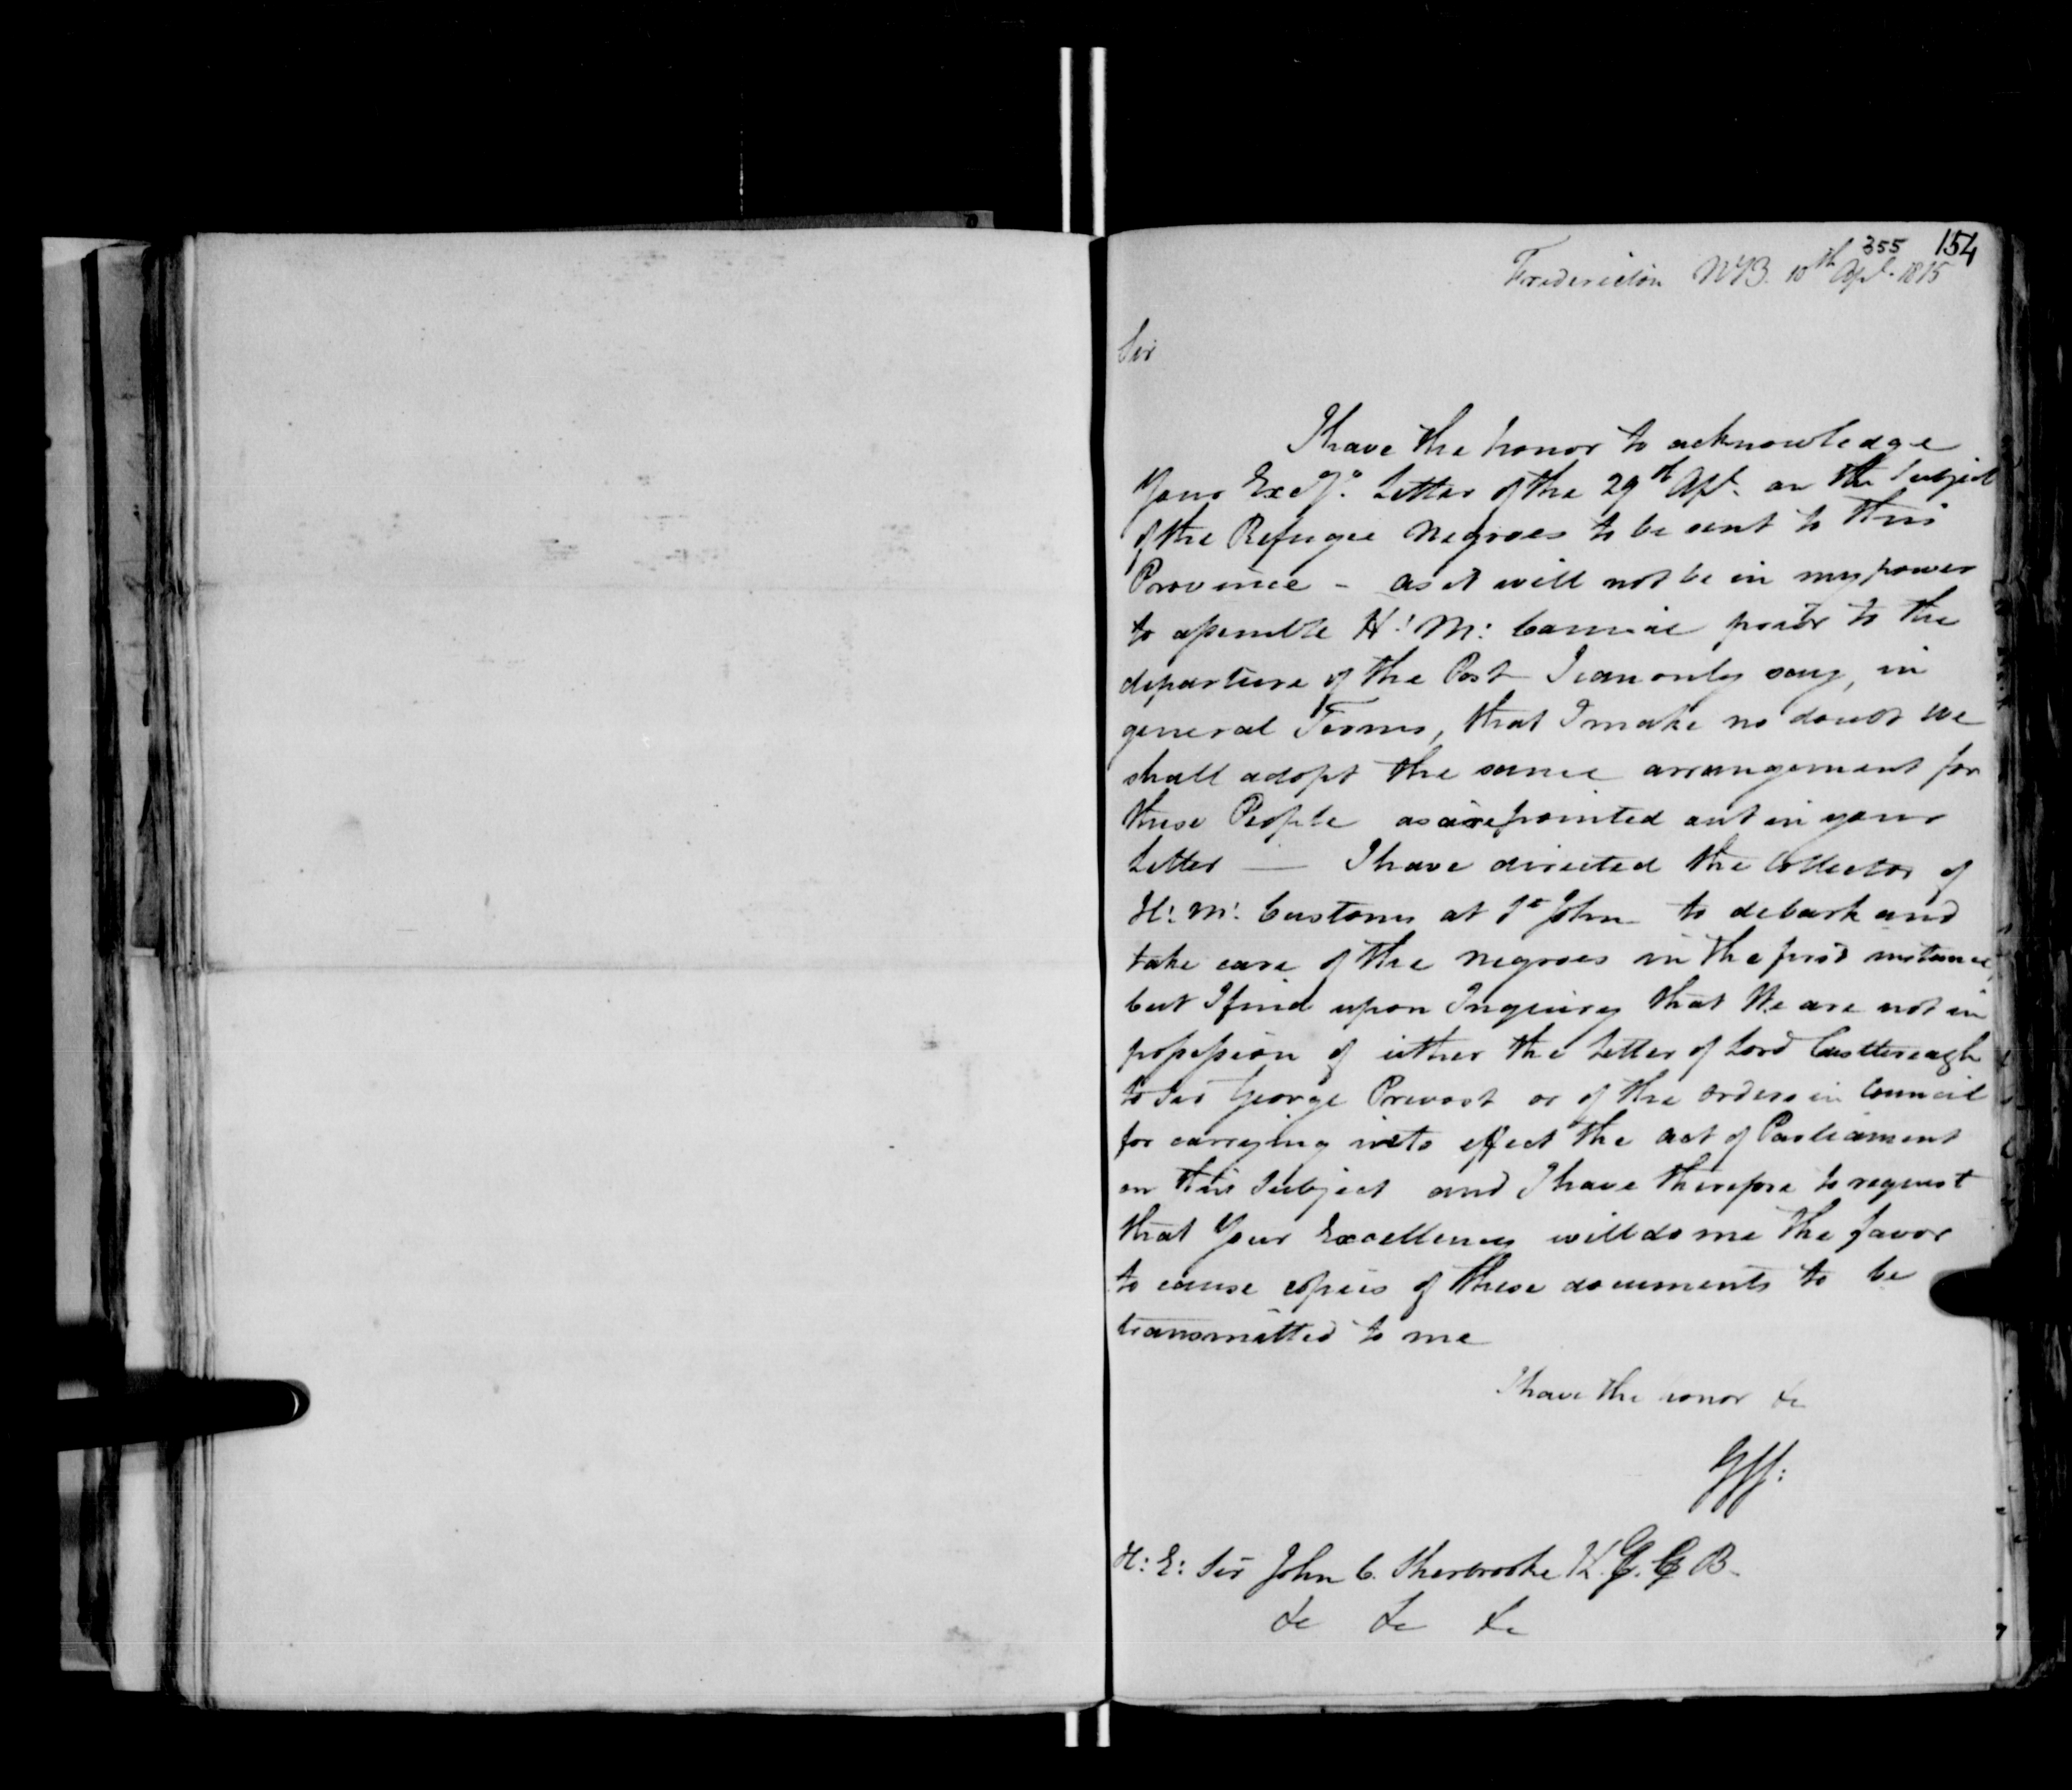 355 154
Fredericton NB. 10th Apl. 1815
Sir
I have the honor to acknowledge
Your Excys. Letter of the 29th Apl. on the Subject
of the Refugee Negroes to be sent to this
Province - as it will not be in my power
to assemble H: M: Council prior to the
departure of the Post I can only say, in
general Terms, that I make no doubt we
shall adopt the same arrangement for
these People as are pointed out in your
Letter — I have directed the Collector of
H: M: Customs at St John to debark and
take care of the negroes in the first instance,
but I find upon Inquiry that We are not in
possession of either the Letter of Lord Castlereagh
to Sir George Prevost or of the orders in Council
for carrying into effect the act of Parliament
on this Subject and I have therefore to request
that Your Excellency will do me the favor
to cause copies of these documents to be
transmitted to me
I have the honor &c
H: E: Sir John C. Sherbrooke K. G. C B.
&c &c &c